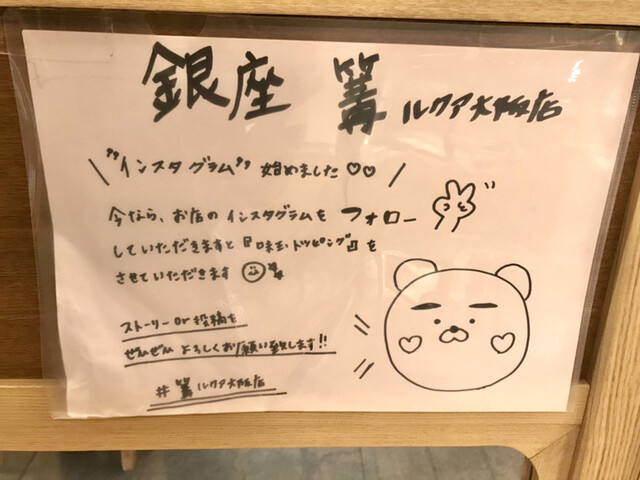 銀座 篝 ルクア大阪店
"インスタグラム" 始めました♡♡
今なら、お店のインスタグラムを フォロー
していただきますと『味玉トッピング』を
させていただきます
ストーリーor投稿を
ぜひぜひ よろしくお願い致します!!
#篝ルクア大阪店